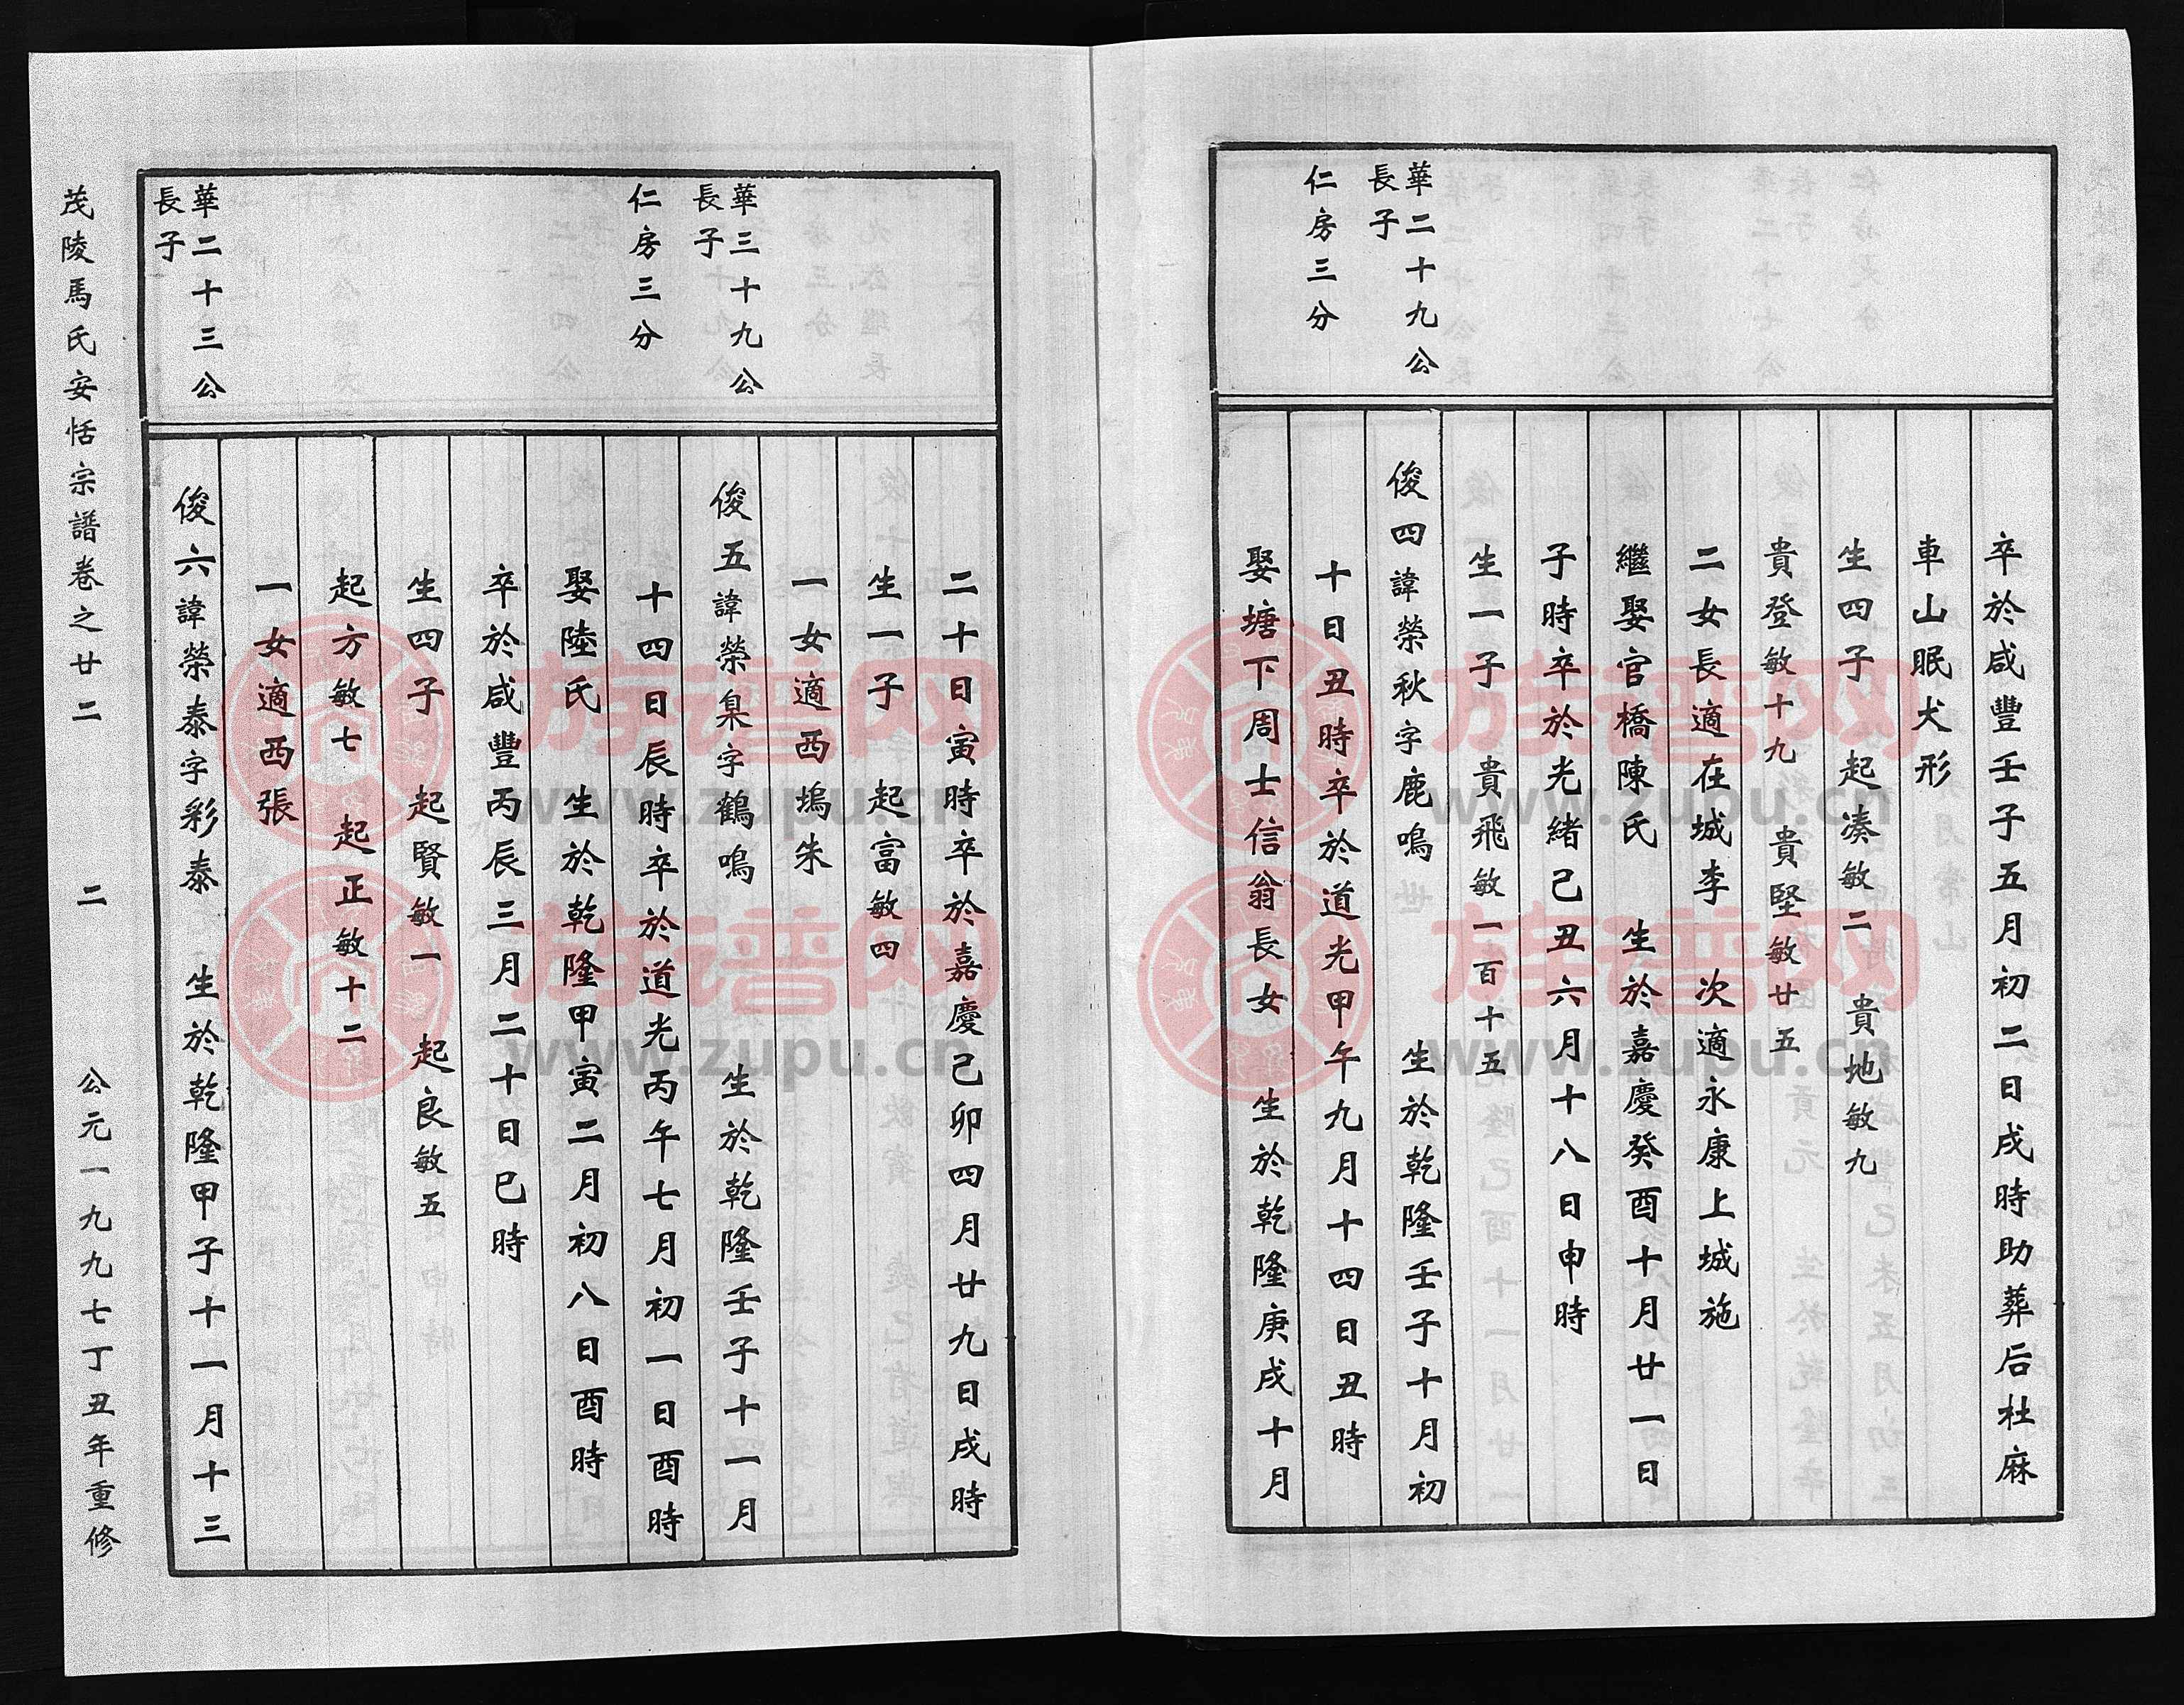 卒於咸豐壬子五月初二日戌時助葬后杜麻
車山眠犬形
生四子　起湊敏二　貴地敏九
貴登敏十九　貴堅敏廿五
二女長適在城李　次適永康上城施
繼娶官橋陳氏　生於嘉慶癸酉十月廿一日
子時卒於光緒己丑六月十八日申時
生一子　貴飛敏一百十五
華二十九公
長子
仁房三分
俊四諱榮秋字鹿鳴　生於乾隆壬子十月初
十日丑時卒於道光甲午九月十四日丑時
娶塘下周士信翁長女　生於乾隆庚戌十月
二十日寅時卒於嘉慶己卯四月廿九日戌時
生一子　起富敏四
一女適西塢朱
華三十九公
長子
仁房三分
俊五諱榮梟字鶴鳴　生於乾隆壬子十一月
十四日辰時卒於道光丙午七月初一日酉時
娶陸氏　生於乾隆甲寅二月初八日酉時
卒於咸豐丙辰三月二十日巳時
生四子　起賢敏一　起良敏五
起方敏七　起正敏十二
一女適西張
華二十三公
長子
俊六諱榮泰字彩泰　生於乾隆甲子十一月十三
茂陵馬氏安恬宗譜卷之廿二　二　公元一九九七丁丑年重修
族谱网
www.zupu.cn
族谱网
www.zupu.cn
族谱网
www.zupu.cn
族谱网
www.zupu.cn